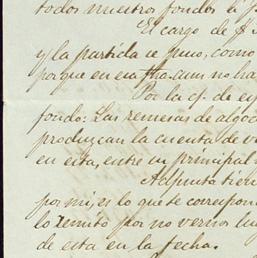 todos nuestros fondos á
El cargo de $
y la partida de puro, como
porque en esa fha. aun no ha
Por la c/. de
fondo: Las remesas de algod
produzcan la cuenta de v
en esta, entre su principal
Adjunta tien
por mi, es lo que te correspon
lo remito por no vernos
de esta en la fecha.